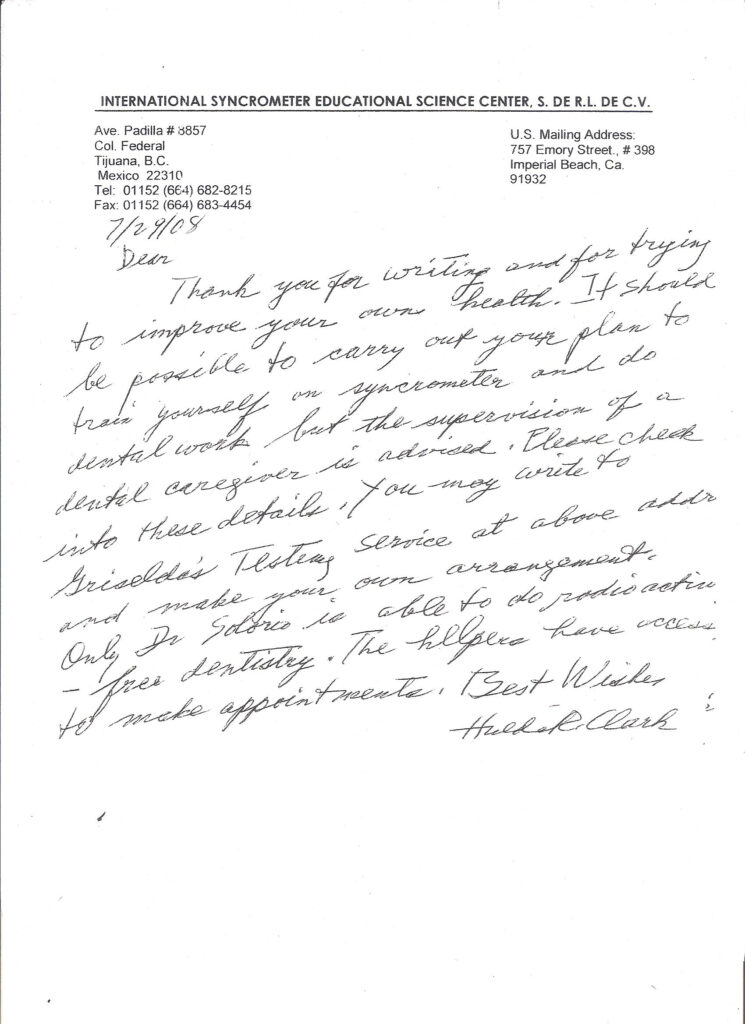 INTERNATIONAL SYNCROMETER EDUCATIONAL SCIENCE CENTER, S. DE R.L. DE C.V.
Ave. Padilla # 8857
Col. Federal
Tijuana, B.C.
Mexico 22310
Tel: 01152 (664) 682-8215
Fax: 01152 (664) 683-4454
U.S. Mailing Address:
757 Emory Street., # 398
Imperial Beach, Ca.
91932
7/29/08
Dear
Thank you for writing and for trying
to improve your own health. It should
be possible to carry out your plan to
train yourself on syncrometer and do
dental work but the supervision of a
dental caregiver is advised. Please check
into these details. You may write to
Griselda's Testing Service at above addr
and make your own arrangement.
Only Dr Solorio is able to do radioactiv
- free dentistry. The helpers have access
to make appointments. Best Wishes
Hulda R. Clark